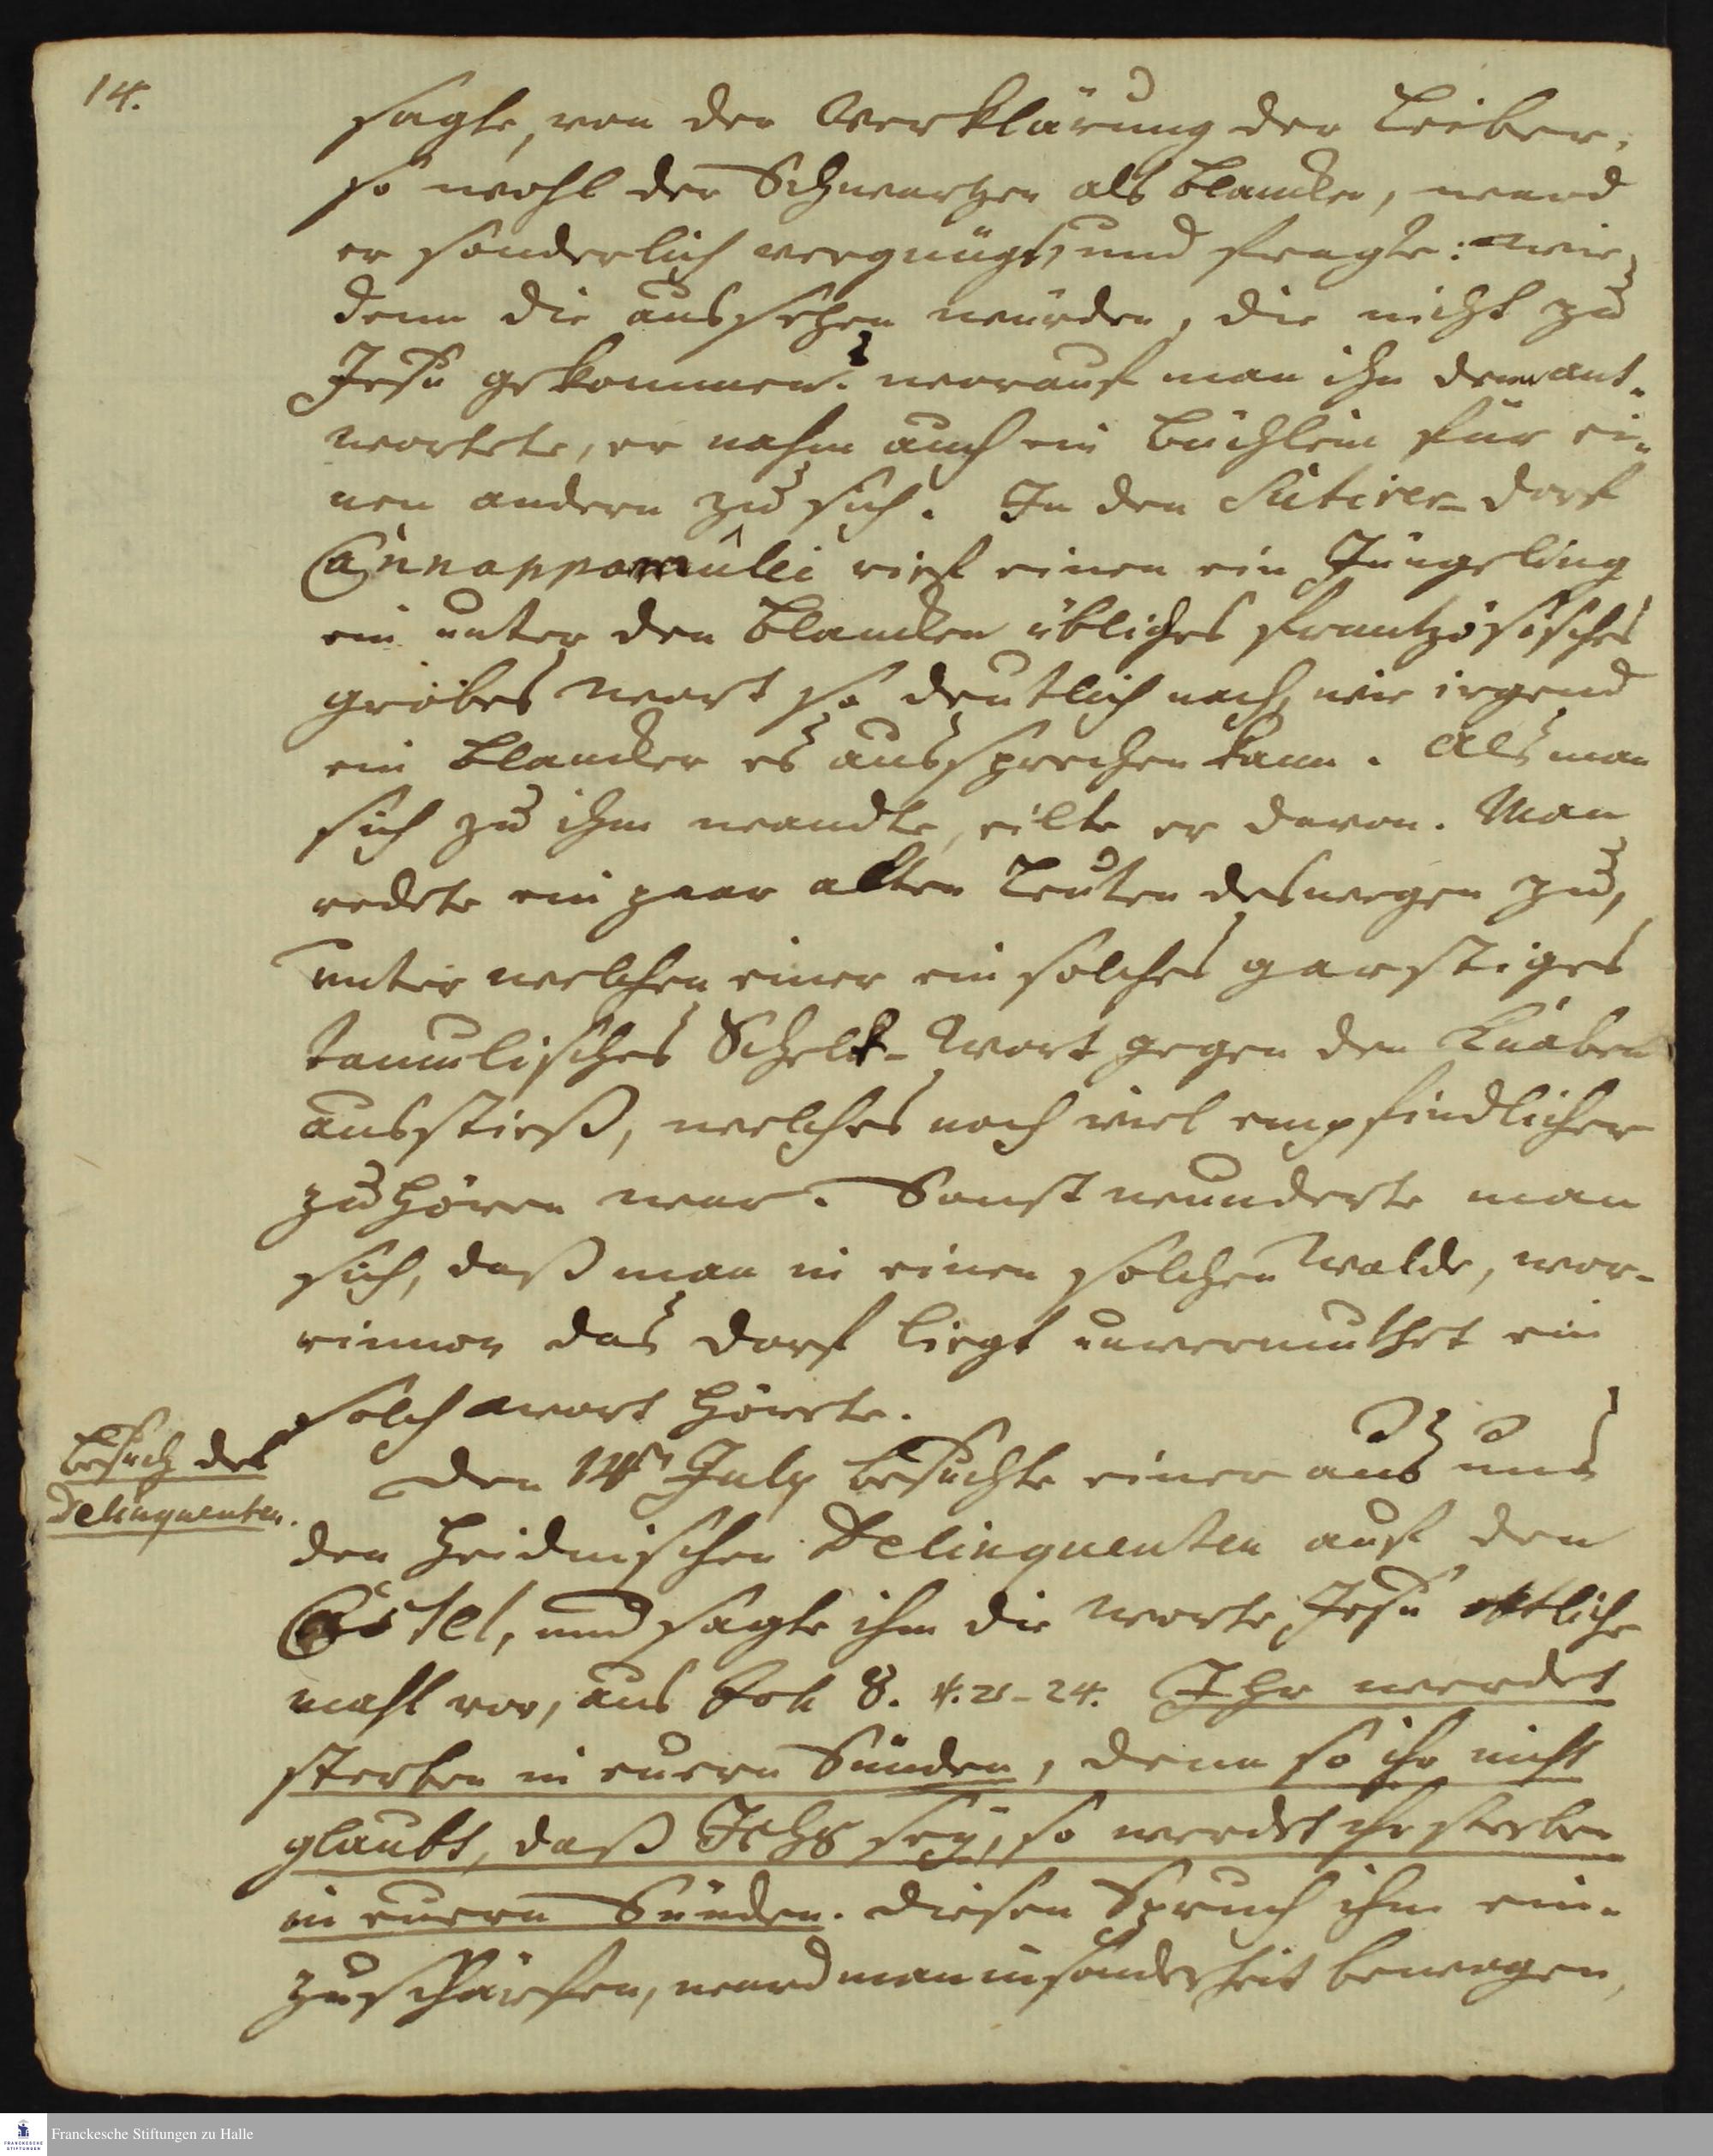 14.
sagte, von der Verklärung der Leiber,
so wohl der Schwartzen als Blancken, ward
er sonderlich vergnügt, und fragte: wie
denn die aussehen würden, die nicht zu
Jesu gekommen? worauf man ihn denn ant-
wortete, er nahm auch ein Büchlein für ei-
nen andern zu sich. In den Sutirer-dorf
Cannappamûlei rief einen ein Jüngeling
ein unter den Blancken übliches frantzösisches
grobes Wort so deutlich nach, wie irgend
ein Blancker es aussprechen kann. Als man
sich zu ihm wandte, eilte er davon. Man
redete ein paar alten Leuten deswegen zu,
unter welchen einer ein solches garstiges
tamulisches Schelt-Wort gegen den Knaben
ausstieß, welches noch viel empfindlicher
zu hören war. Sonst wunderte man
sich, daß man in einen solchen Walde, wor-
rinnen das Dorf liegt unvermuthet ein
solch Wort hörete.
Besuch des
Delinquenten.
Den 14ten July besuchte einer aus uns
den heidnischen Delinquenten auf den
Castel, und sagte ihm die Worte Jesu etliche
mahl vor, aus Joh 8. v. 21-24. Ihr werdet
sterben in euern Sünden, denn so ihr nicht
glaubt, daß Ichs sey, so werdet ihr sterben
in euern Sünden. Diesen Spruch ihm ein-
zuschärfen, ward man insonderheit bewogen,
Franckesche Stiftungen zu Halle